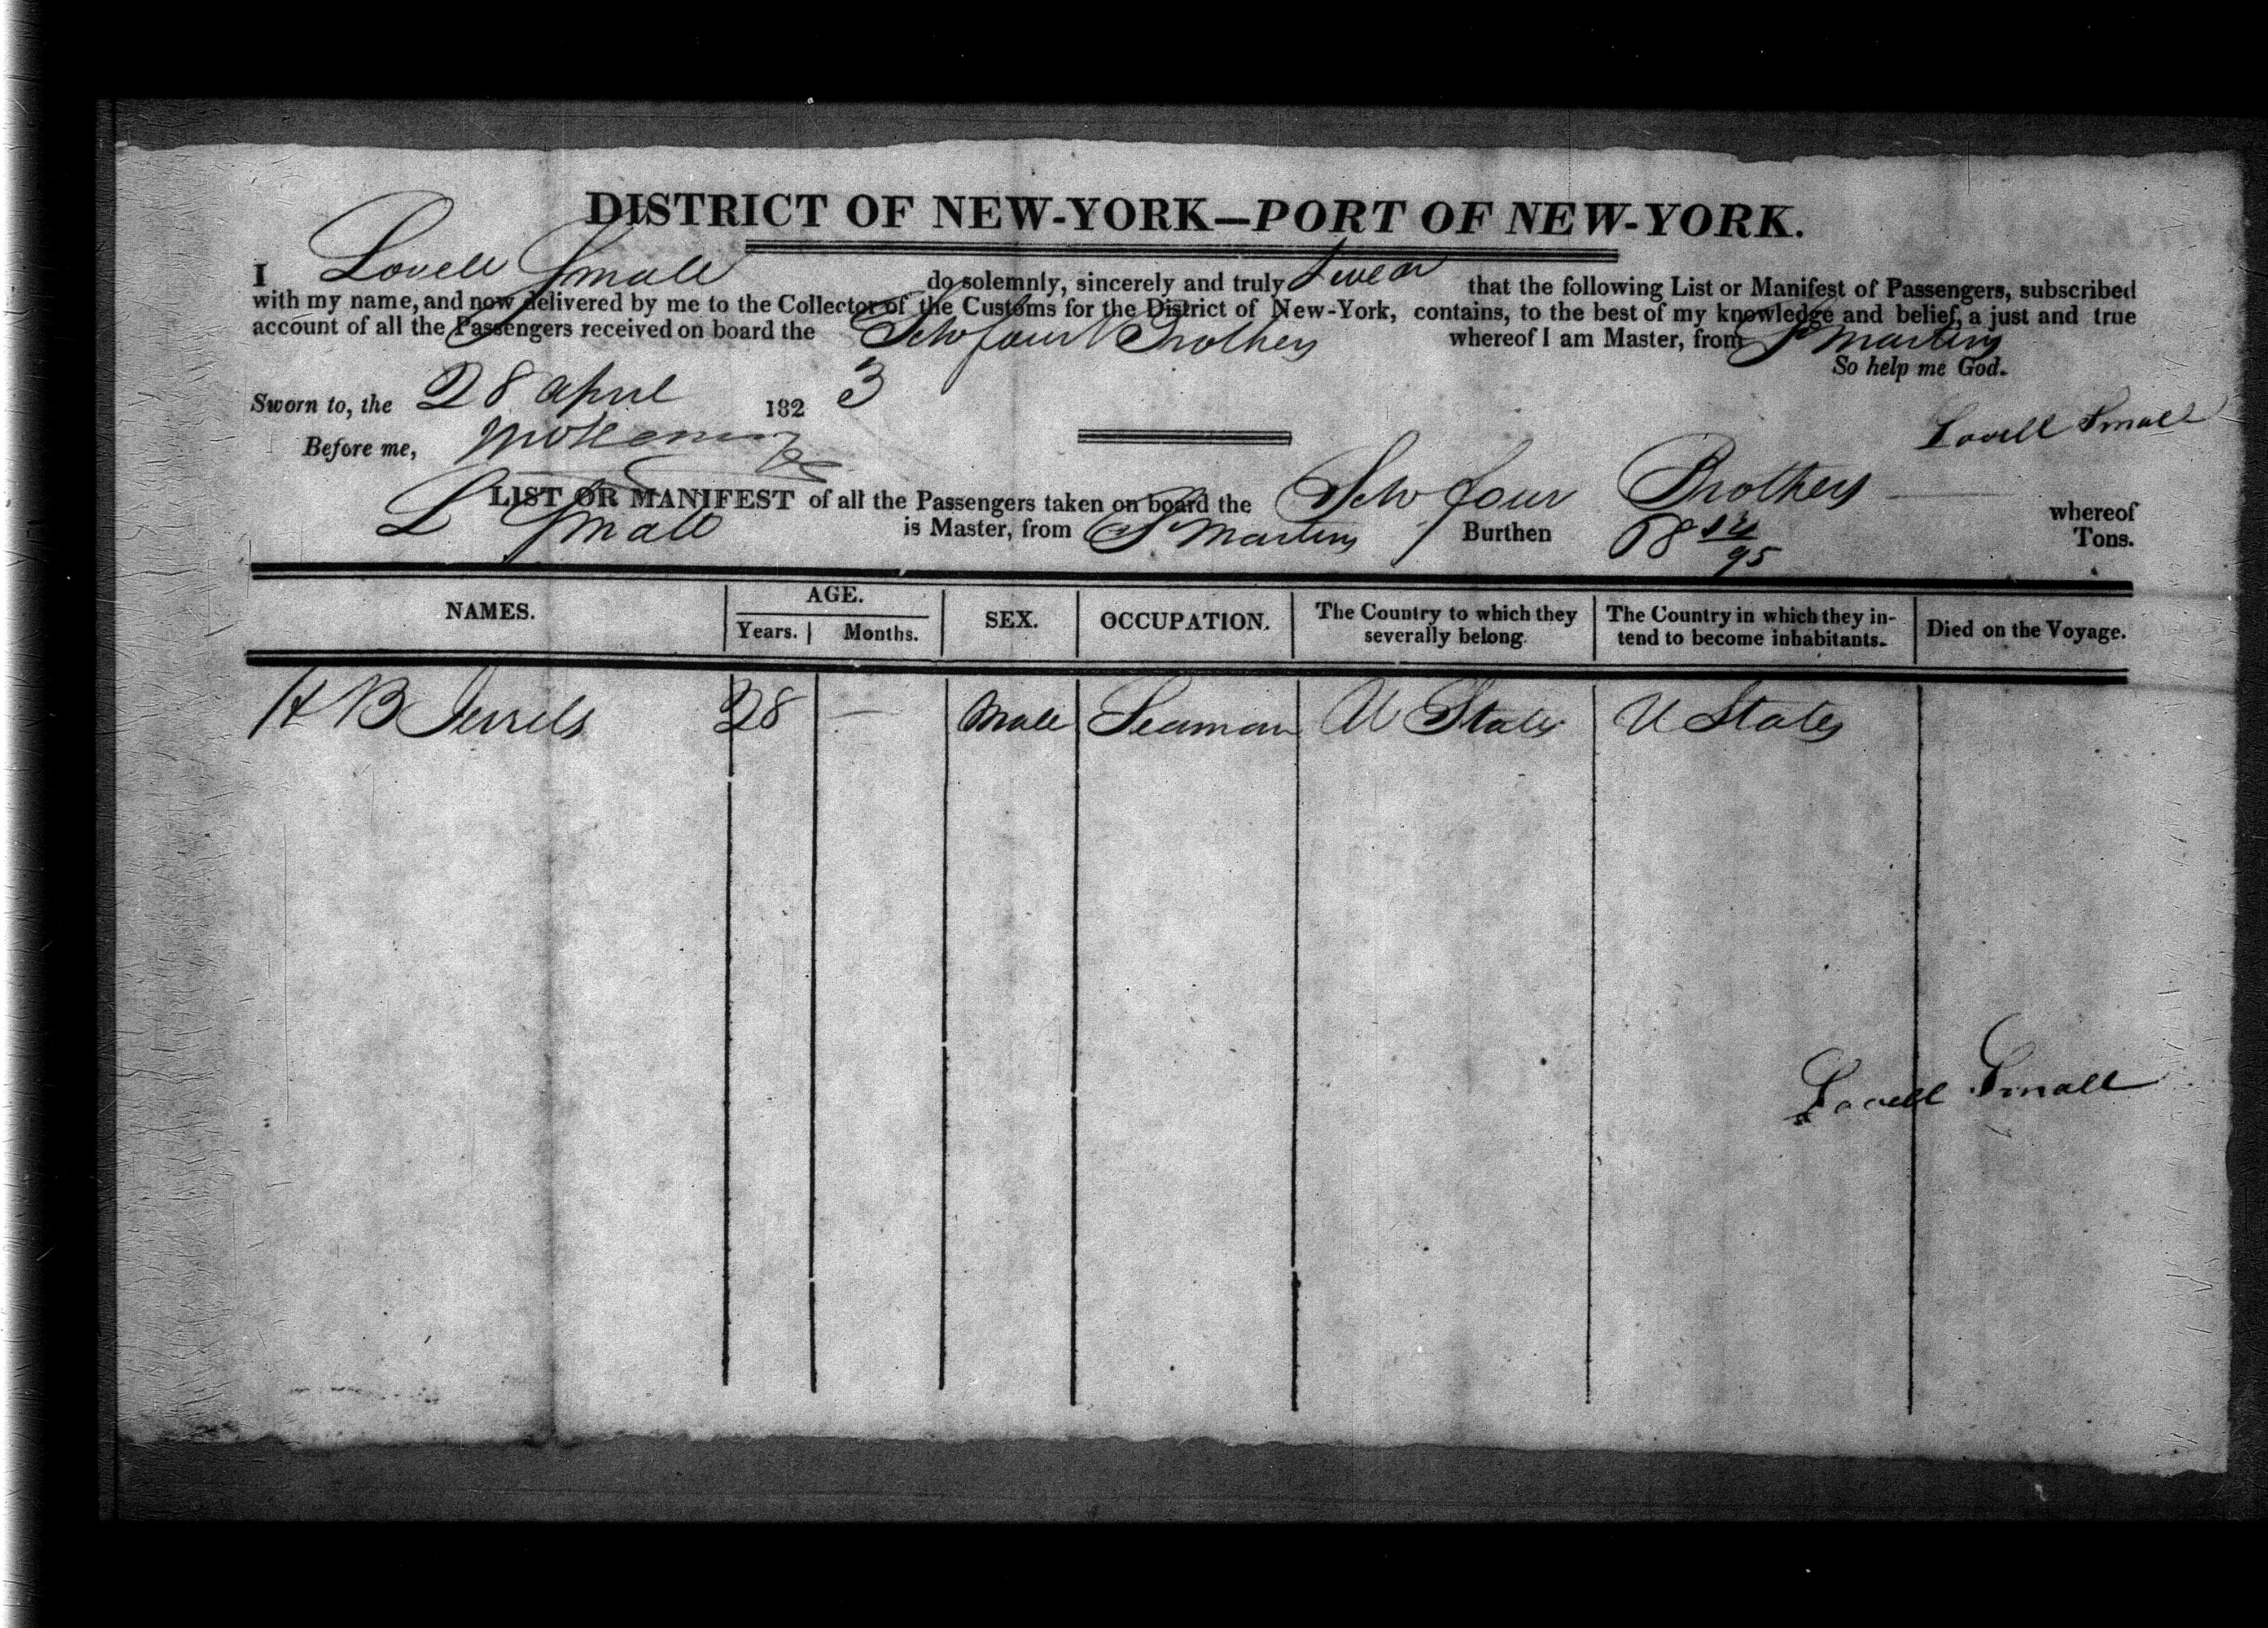 DISTRICT OF NEW-YORK—PORT OF NEW-YORK.
I Lovell Small do solemnly, sincerely and truly swear that the following List or Manifest of Passengers, subscribed
with my name, and now delivered by me to the Collector of the Customs for the District of New-York, contains, to the best of my knowledge and belief, a just and true
account of all the Passengers received on board the Schr four Brothers whereof I am Master, from St Martins
So help me God.
Sworn to, the 28 april 1823
Lovell Small
Before me,
LIST OR MANIFEST of all the Passengers taken on board the Schr four Brothers whereof
L Small is Master, from St Martins Burthen 68 Tons.
NAMES. AGE. SEX. OCCUPATION. The Country to which they severally belong. The Country in which they in-tend to become inhabitants. Died on the Voyage.
Years. Months.
H B 28 — Male Seaman U States U States
Lovell Small